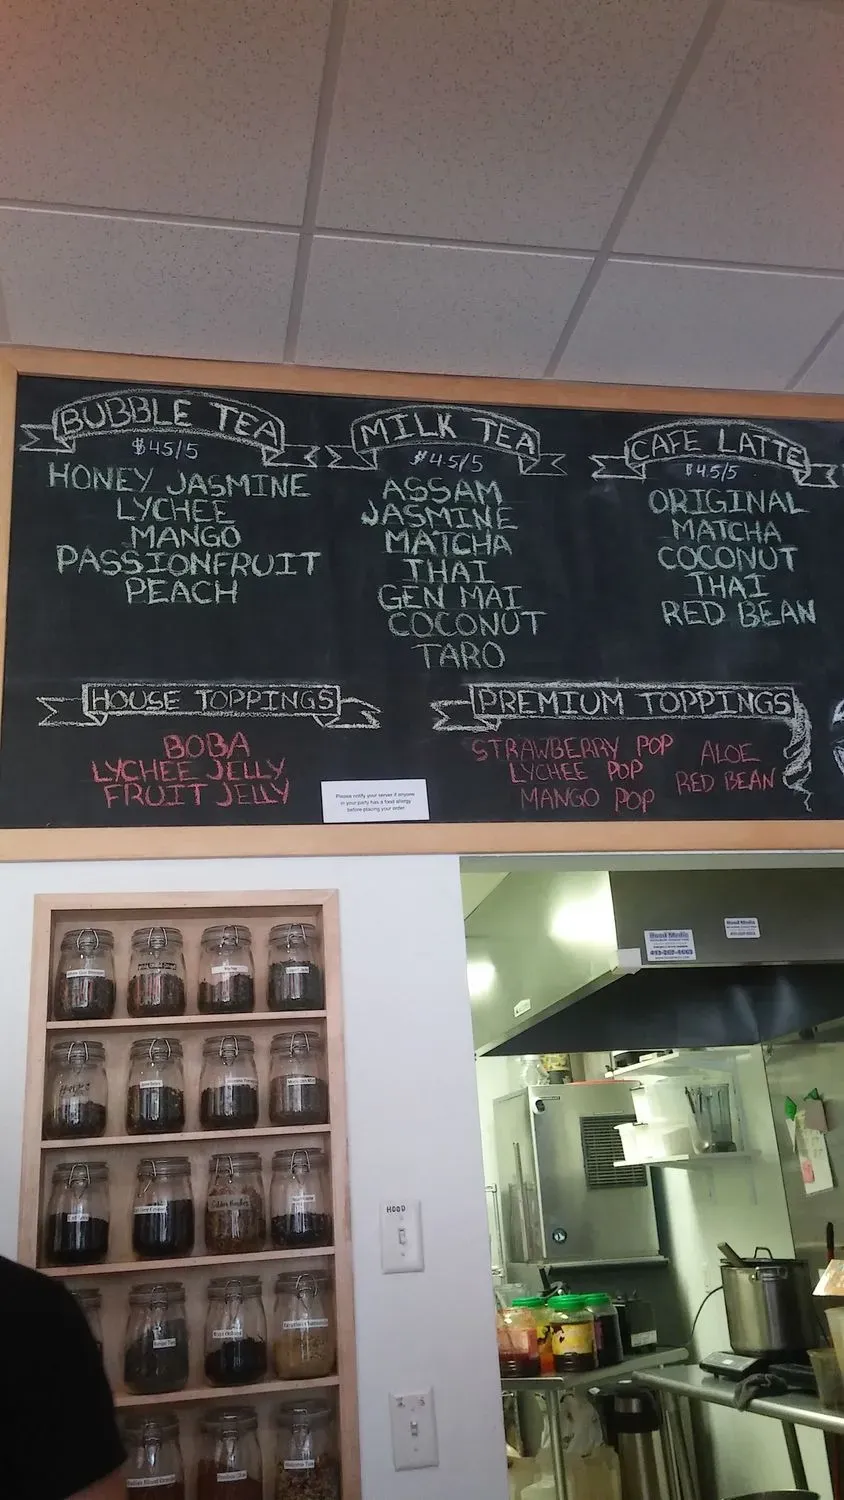 BUBBLE TEA
$45/5
HONEY JASMINE
LYCHEE
MANGO
PASSIONFRUIT
PEACH
MILK TEA
$4.5/5
ASSAM
JASMINE
MATCHA
THAI
GEN MAI
COCONUT
TARO
CAFE LATTE
$4.5/5
ORIGINAL
MATCHA
COCONUT
THAI
RED BEAN
HOUSE TOPPINGS
BOBA
LYCHEE JELLY
FRUIT JELLY
PREMIUM TOPPINGS
STRAWBERRY POP
LYCHEE POP
MANGO POP
ALOE
RED BEAN
Please notify your server if anyone
in your party has a food allergy
before placing your order
Hood Medic
HOOD